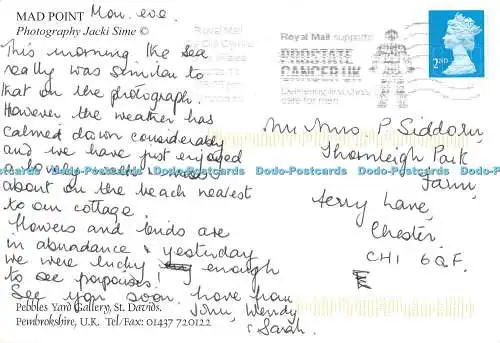 MAD POINT
Photography Jacki Sime ©
Mon. eve.
This morning the sea
really was similar to
that on the photograph.
However the weather has
calmed down considerably
and we have just enjoyed
about on the beach nearest
to our cottage.
Flowers and birds are
in abundance & yesterday
we were lucky enough
to see porpoises!
See you soon. Love from
John, Wendy
& Sarah.
Pebbles Yard Gallery, St. Davids.
Pembrokshire, U.K. Tel/Fax: 01437 720122
Royal Mail
Royal Mail supports
PROSTATE
CANCER UK
Delivering first class
care for men
2ND
Mr Mrs P Siddorn,
Thornleigh Park
Farm,
Ferry Lane,
Chester.
CH1 6QF.
Dodo-Postcards Dodo-Postcards Dodo-Postcards Dodo-Postcards Dodo-Postcards